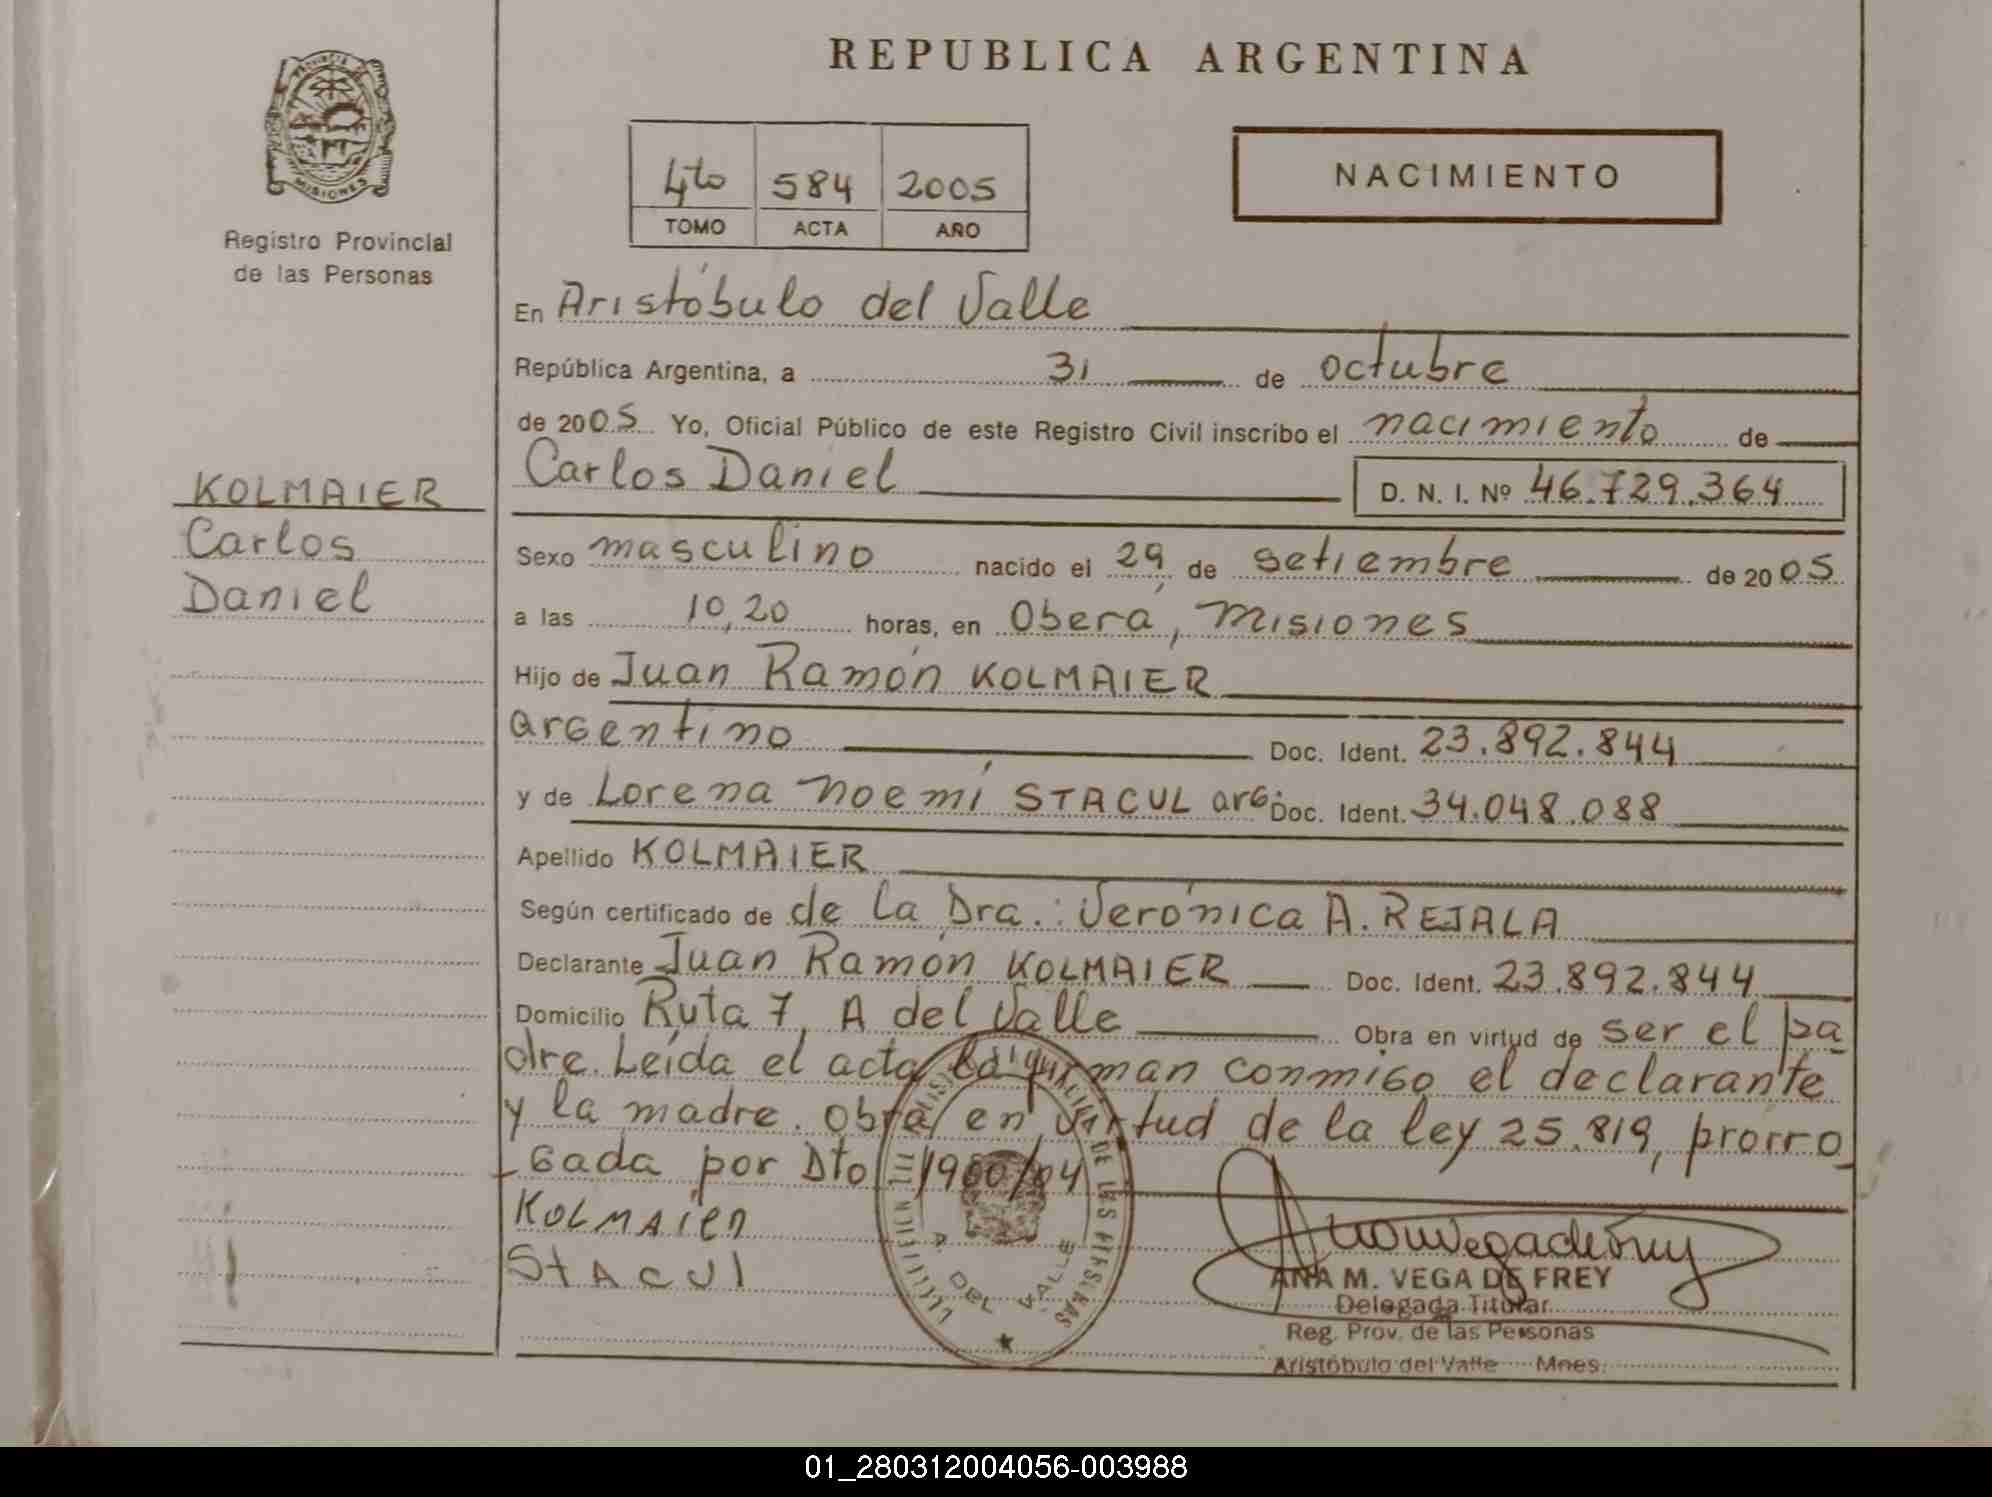 REPUBLICA ARGENTINA
PROVINCIA DE
MISIONES
Registro Provincial
de las Personas
4to 584 2005
TOMO ACTA AÑO
NACIMIENTO
En Aristóbulo del Valle
República Argentina, a 31 de octubre
de 2005 Yo, Oficial Público de este Registro Civil inscribo el nacimiento de
Carlos Daniel D. N. I. Nº 46.729.364
KOLMAIER
Carlos
Daniel
Sexo masculino nacido el 29 de setiembre de 2005
a las 10,20 horas, en Oberá, Misiones
Hijo de Juan Ramón KOLMAIER
argentino Doc. Ident. 23.892.844
y de Lorena Noemí STACUL arg. Doc. Ident. 34.048.088
Apellido KOLMAIER
Según certificado de de la Dra.: Verónica A. REJALA
Declarante Juan Ramón KOLMAIER Doc. Ident. 23.892.844
Domicilio Ruta 7, A del Valle Obra en virtud de ser el pa
dre. Leída el acta la firman conmigo el declarante
y la madre. Obra en virtud de la ley 25.819, prorro
gada por Dto 1900/04
KOLMAIER
STACUl
DE LAS PERSONAS
A. DEL VALLE
ANA M. VEGA DE FREY
Delegada Titular
Reg. Prov. de las Personas
Aristóbulo del Valle - Mnes.
01_280312004056-003988